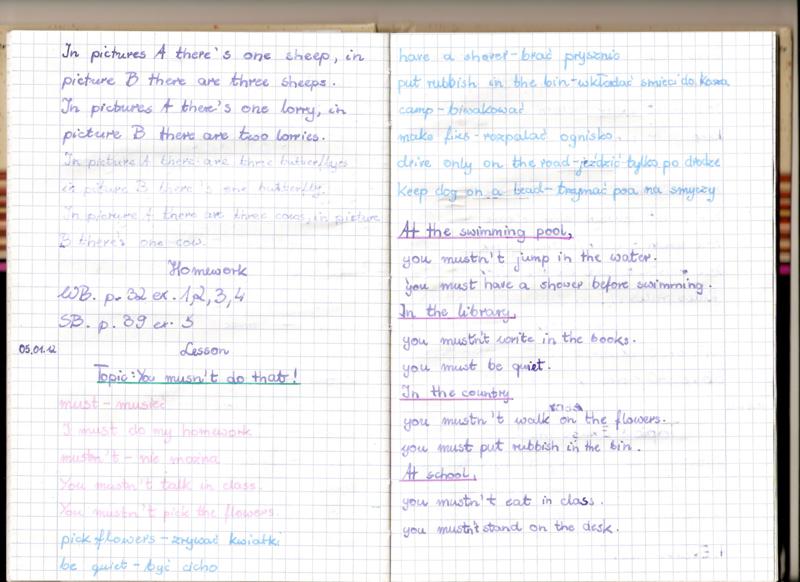 In pictures A there's one sheep, in
picture B there are three sheeps.
In pictures A there's one lorry, in
picture B there are two lorries.
In picture A there are three butterflyes
in picture B there 's one butterfly.
In picture A there are three cows, in picture
B there's one cow.
Homework
WB. p. 32 ex. 1,2,3,4
SB. p. 39 ex. 5
05.01.12 Lesson
Topic: You musn't do that!
must - musieć
I must do my homework
mustn't - nie można
You mustn't talk in class.
You mustn't pick the flowers.
pick flowers - zrywać kwiatki
be quiet - być cicho
have a shower - brać prysznic
put rubbish in the bin - wkładać śmieci do kosza
camp - biwakować
make fies - rozpalać ognisko
drive only on the road - jeździć tylko po drodze
Keep dog on a lead - trzymać psa na smyczy
At the swimming pool,
you mustn't jump in the water.
you must have a shower before swimming.
In the library,
you mustn't write in the books.
you must be quiet.
In the country
you mustn't walk on the flowers.
you must put rubbish in the bin.
At school,
you mustn't eat in class.
you mustn't stand on the desk.